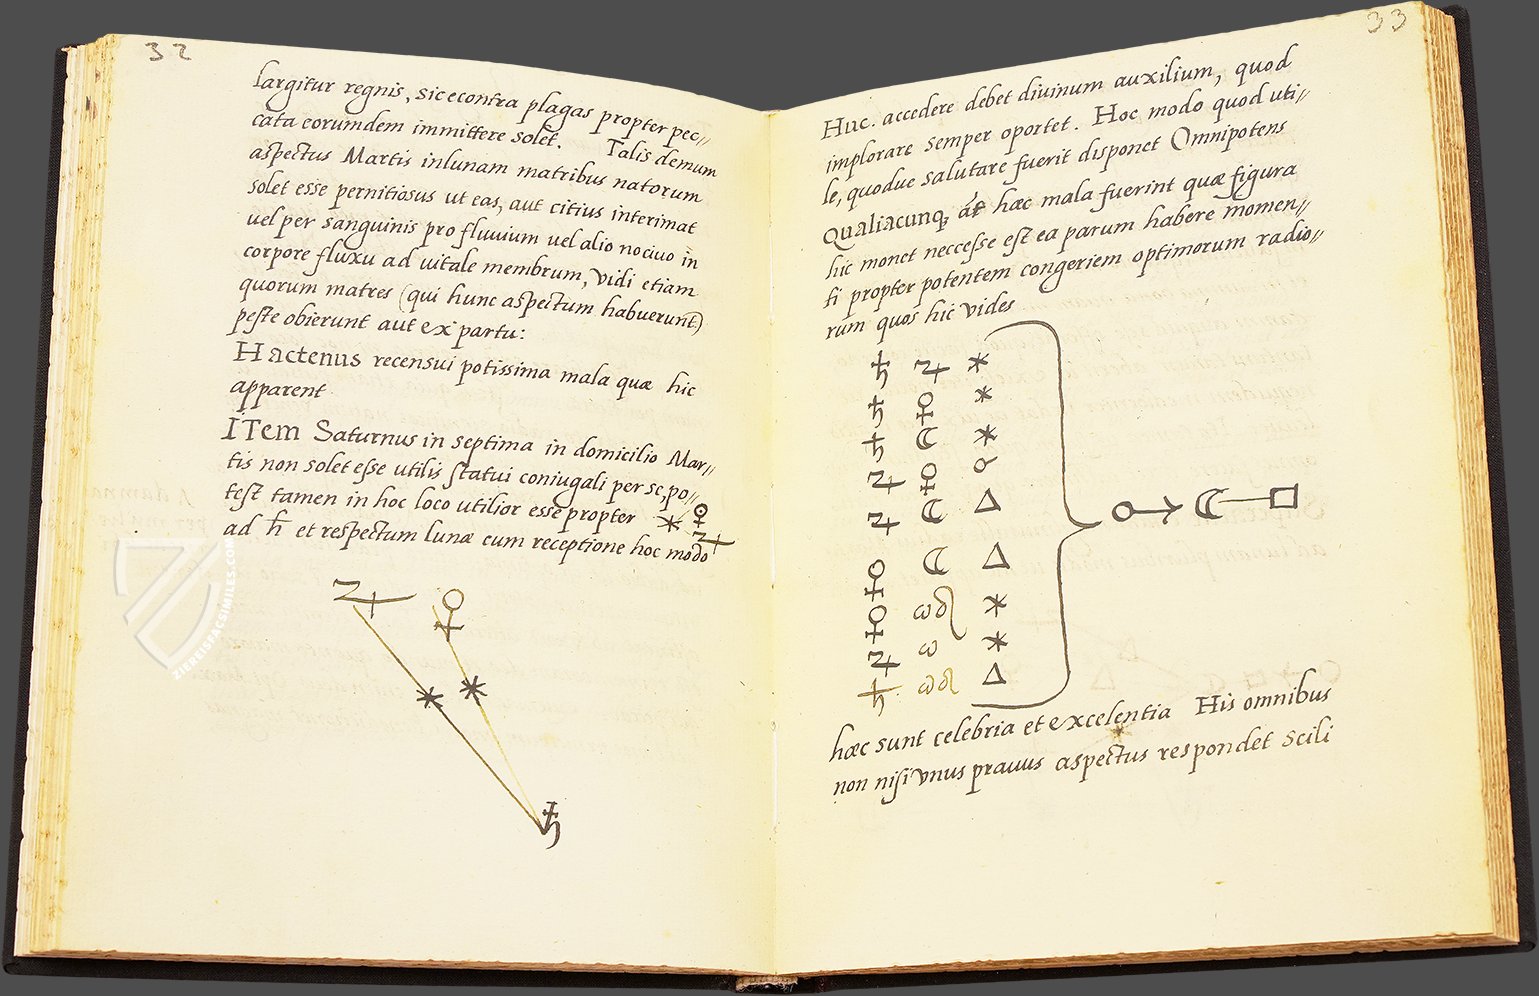 32
largitur regnis, sic econtra plagas propter pec//
cata eorumdem immittere solet. Talis demum
aspectus Martis inlunam matribus natorum
solet esse pernitiosus ut eas, aut citius interimat
uel per sanguinis pro fluuium uel alio nociuo in
corpore fluxu ad uitale membrum, vidi etiam
quorum matres (qui hunc aspectum habuerunt)
peste obierunt aut ex partu:
Hactenus recensui potissima mala quæ hic
apparent
ITem Saturnus in septima in domicilio Mar//
tis non solet esse utilis statui coniugali per se, po//
test tamen in hoc loco utilior esse propter ⚹ ♀
♃
ad ♄ et respectum lunæ cum receptione hoc modo
♃ ♀
⚹ ⚹
♄
ZIEREISFACSIMILES.COM
33
Huc. accedere debet diuinum auxilium, quod
implorare semper oportet. Hoc modo quod uti//
le, quodue salutare fuerit disponet Omnipotens
Qualiacunq; at hæc mala fuerint quæ figura
hic monet neccesse est ea parum habere momen//
ti propter potentem congeriem optimorum radio//
rum quos hic vides
♄ ♃ ⚹
♄ ♀ ⚹
♄ ☾ ⚹
♃ ♀ ☌
♃ ☾ △
♀ ☾ △
♀ ⚹
♃ ⚹
♄ △
☾ □
hæc sunt celebria et excelentia His omnibus
non nisi vnus prauus aspectus respondet scili